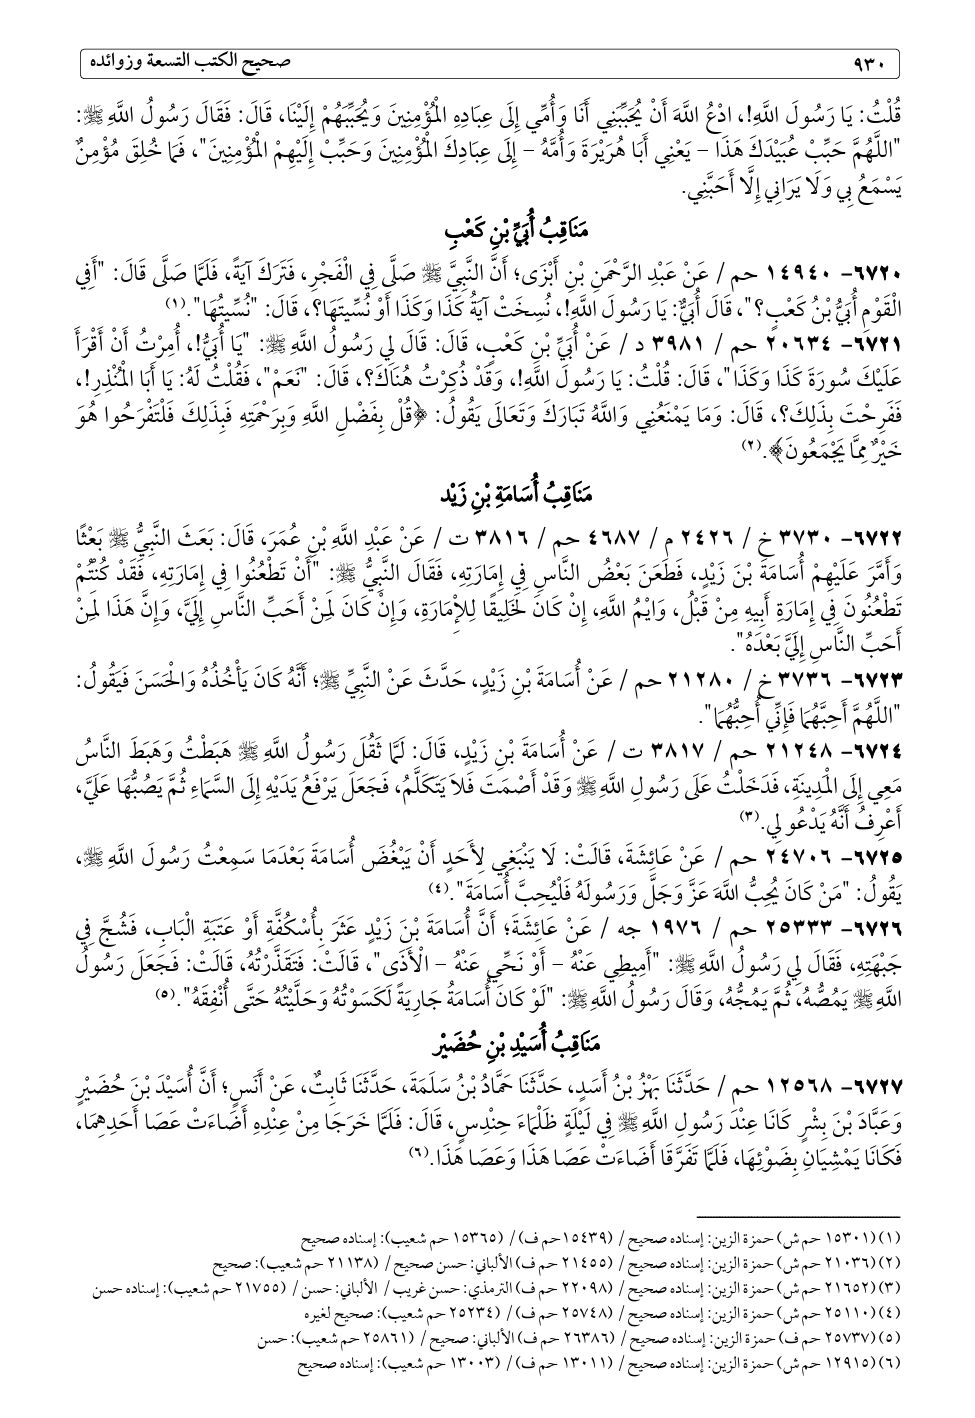 ٩٣٠ صحيح الكتب التسعة وزوائده
قُلْتُ: يَا رَسُولَ اللَّهِ!، ادْعُ اللَّهَ أَنْ يُحَبِّبَنِي أَنَا وَأُمِّي إِلَى عِبَادِهِ الْمُؤْمِنِينَ وَيُحَبِّبَهُمْ إِلَيْنَا، قَالَ: فَقَالَ رَسُولُ اللَّهِ ﷺ:
"اللَّهُمَّ حَبِّبْ عُبَيْدَكَ هَذَا – يَعْنِي أَبَا هُرَيْرَةَ وَأُمَّهُ – إِلَى عِبَادِكَ الْمُؤْمِنِينَ وَحَبِّبْ إِلَيْهِمْ الْمُؤْمِنِينَ"، فَمَا خُلِقَ مُؤْمِنٌ
يَسْمَعُ بِي وَلَا يَرَانِي إِلَّا أَحَبَّنِي.
مَنَاقِبُ أُبَيِّ بْنِ كَعْبٍ
٦٧٢٠- ١٤٩٤٠ حم / عَنْ عَبْدِ الرَّحْمَنِ بْنِ أَبْزَى؛ أَنَّ النَّبِيَّ ﷺ صَلَّى فِي الْفَجْرِ، فَتَرَكَ آيَةً، فَلَمَّا صَلَّى قَالَ: "أَفِي
الْقَوْمِ أُبَيُّ بْنُ كَعْبٍ؟"، قَالَ أُبَيٌّ: يَا رَسُولَ اللَّهِ!، نُسِخَتْ آيَةُ كَذَا وَكَذَا أَوْ نُسِّيتَهَا؟، قَالَ: "نُسِّيتُهَا".(١)
٦٧٢١- ٢٠٦٣٤ حم / ٣٩٨١ د / عَنْ أُبَيِّ بْنِ كَعْبٍ، قَالَ: قَالَ لِي رَسُولُ اللَّهِ ﷺ: "يَا أُبَيُّ!، أُمِرْتُ أَنْ أَقْرَأَ
عَلَيْكَ سُورَةَ كَذَا وَكَذَا"، قَالَ: قُلْتُ: يَا رَسُولَ اللَّهِ!، وَقَدْ ذُكِرْتُ هُنَاكَ؟، قَالَ: "نَعَمْ"، فَقُلْتُ لَهُ: يَا أَبَا الْمُنْذِرِ!،
فَفَرِحْتَ بِذَلِكَ؟، قَالَ: وَمَا يَمْنَعُنِي وَاللَّهُ تَبَارَكَ وَتَعَالَى يَقُولُ: ﴿قُلْ بِفَضْلِ اللَّهِ وَبِرَحْمَتِهِ فَبِذَلِكَ فَلْتَفْرَحُوا هُوَ
خَيْرٌ مِمَّا يَجْمَعُونَ﴾.(٢)
مَنَاقِبُ أُسَامَةِ بْنِ زَيْد
٦٧٢٢- ٣٧٣٠ خ / ٢٤٢٦ م / ٤٦٨٧ حم / ٣٨١٦ ت / عَنْ عَبْدِ اللَّهِ بْنِ عُمَرَ، قَالَ: بَعَثَ النَّبِيُّ ﷺ بَعْثًا
وَأَمَّرَ عَلَيْهِمْ أُسَامَةَ بْنَ زَيْدٍ، فَطَعَنَ بَعْضُ النَّاسِ فِي إِمَارَتِهِ، فَقَالَ النَّبِيُّ ﷺ: "أَنْ تَطْعُنُوا فِي إِمَارَتِهِ، فَقَدْ كُنْتُمْ
تَطْعُنُونَ فِي إِمَارَةِ أَبِيهِ مِنْ قَبْلُ، وَايْمُ اللَّهِ، إِنْ كَانَ لَخَلِيقًا لِلْإِمَارَةِ، وَإِنْ كَانَ لَمِنْ أَحَبِّ النَّاسِ إِلَيَّ، وَإِنَّ هَذَا لَمِنْ
أَحَبِّ النَّاسِ إِلَيَّ بَعْدَهُ".
٦٧٢٣- ٣٧٣٦ خ / ٢١٢٨٠ حم / عَنْ أُسَامَةَ بْنِ زَيْدٍ، حَدَّثَ عَنْ النَّبِيِّ ﷺ؛ أَنَّهُ كَانَ يَأْخُذُهُ وَالْحَسَنَ فَيَقُولُ:
"اللَّهُمَّ أَحِبَّهُمَا فَإِنِّي أُحِبُّهُمَا".
٦٧٢٤- ٢١٢٤٨ حم / ٣٨١٧ ت / عَنْ أُسَامَةَ بْنِ زَيْدٍ، قَالَ: لَمَّا ثَقُلَ رَسُولُ اللَّهِ ﷺ هَبَطْتُ وَهَبَطَ النَّاسُ
مَعِي إِلَى الْمَدِينَةِ، فَدَخَلْتُ عَلَى رَسُولِ اللَّهِ ﷺ وَقَدْ أَصْمَتَ فَلَا يَتَكَلَّمُ، فَجَعَلَ يَرْفَعُ يَدَيْهِ إِلَى السَّمَاءِ ثُمَّ يَصُبُّهَا عَلَيَّ،
أَعْرِفُ أَنَّهُ يَدْعُو لِي.(٣)
٦٧٢٥- ٢٤٧٠٦ حم / عَنْ عَائِشَةَ، قَالَتْ: لَا يَنْبَغِي لِأَحَدٍ أَنْ يَبْغُضَ أُسَامَةَ بَعْدَمَا سَمِعْتُ رَسُولَ اللَّهِ ﷺ،
يَقُولُ: "مَنْ كَانَ يُحِبُّ اللَّهَ عَزَّ وَجَلَّ وَرَسُولَهُ فَلْيُحِبَّ أُسَامَةَ".(٤)
٦٧٢٦- ٢٥٣٣٣ حم / ١٩٧٦ جه / عَنْ عَائِشَةَ؛ أَنَّ أُسَامَةَ بْنَ زَيْدٍ عَثَرَ بِأُسْكُفَّةِ أَوْ عَتَبَةِ الْبَابِ، فَشُجَّ فِي
جَبْهَتِهِ، فَقَالَ لِي رَسُولُ اللَّهِ ﷺ: "أَمِيطِي عَنْهُ – أَوْ نَحِّي عَنْهُ – الْأَذَى"، قَالَتْ: فَتَقَذَّرْتُهُ، قَالَتْ: فَجَعَلَ رَسُولُ
اللَّهِ ﷺ يَمُصُّهُ، ثُمَّ يَمُجُّهُ، وَقَالَ رَسُولُ اللَّهِ ﷺ: "لَوْ كَانَ أُسَامَةُ جَارِيَةً لَكَسَوْتُهُ وَحَلَّيْتُهُ حَتَّى أُنْفِقَهُ".(٥)
مَنَاقِبُ أُسَيْدِ بْنِ حُضَيْرْ
٦٧٢٧- ١٢٥٦٨ حم / حَدَّثَنَا بَهْزُ بْنُ أَسَدٍ، حَدَّثَنَا حَمَّادُ بْنُ سَلَمَةَ، حَدَّثَنَا ثَابِتٌ، عَنْ أَنَسٍ؛ أَنَّ أُسَيْدَ بْنَ حُضَيْرٍ
وَعَبَّادَ بْنَ بِشْرٍ كَانَا عِنْدَ رَسُولِ اللَّهِ ﷺ فِي لَيْلَةٍ ظَلْمَاءَ حِنْدِسٍ، قَالَ: فَلَمَّا خَرَجَا مِنْ عِنْدِهِ أَضَاءَتْ عَصَا أَحَدِهِمَا،
فَكَانَا يَمْشِيَانِ بِضَوْئِهَا، فَلَمَّا تَفَرَّقَا أَضَاءَتْ عَصَا هَذَا وَعَصَا هَذَا.(٦)
(١) (١٥٣٠١ حم ش) حمزة الزين: إسناده صحيح / (١٥٤٣٩حم ف) / (١٥٣٦٥ حم شعيب): إسناده صحيح
(٢) (٢١٠٣٦ حم ش) حمزة الزين: إسناده صحيح / (٢١٤٥٥ حم ف) الألباني: حسن صحيح / (٢١١٣٨ حم شعيب): صحيح
(٣) (٢١٦٥٢ حم ش) حمزة الزين: إسناده صحيح / (٢٢٠٩٨ حم ف) الترمذي: حسن غريب / الألباني: حسن / (٢١٧٥٥ حم شعيب): إسناده حسن
(٤) (٢٥١١٠ حم ش) حمزة الزين: إسناده صحيح / (٢٥٧٤٨ حم ف) / (٢٥٢٣٤ حم شعيب): صحيح لغيره
(٥) (٢٥٧٣٧ حم ف) حمزة الزين: إسناده صحيح / (٢٦٣٨٦ حم ف) الألباني: صحيح / (٢٥٨٦١ حم شعيب): حسن
(٦) (١٢٩١٥ حم ش) حمزة الزين: إسناده صحيح / (١٣٠١١ حم ف) / (١٣٠٠٣ حم شعيب): إسناده صحيح